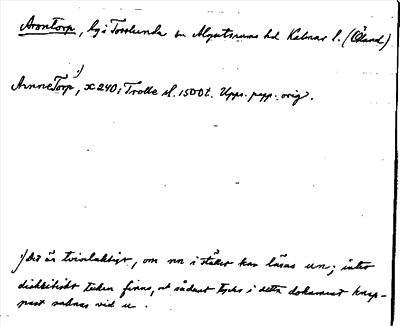 Arontorp, by i Torslunda sn Algutsrums hd Kalmar l. (Öland)
ArnneTorp, 1) x 240, Trolle sl. 1500t. Upps. papp. orig.
1) Det är tvivelaktigt, om nn i stället kan läsas un; intet
diakritiskt tecken finns, och sådant tycks i detta dokument knap-
past saknas vid u.